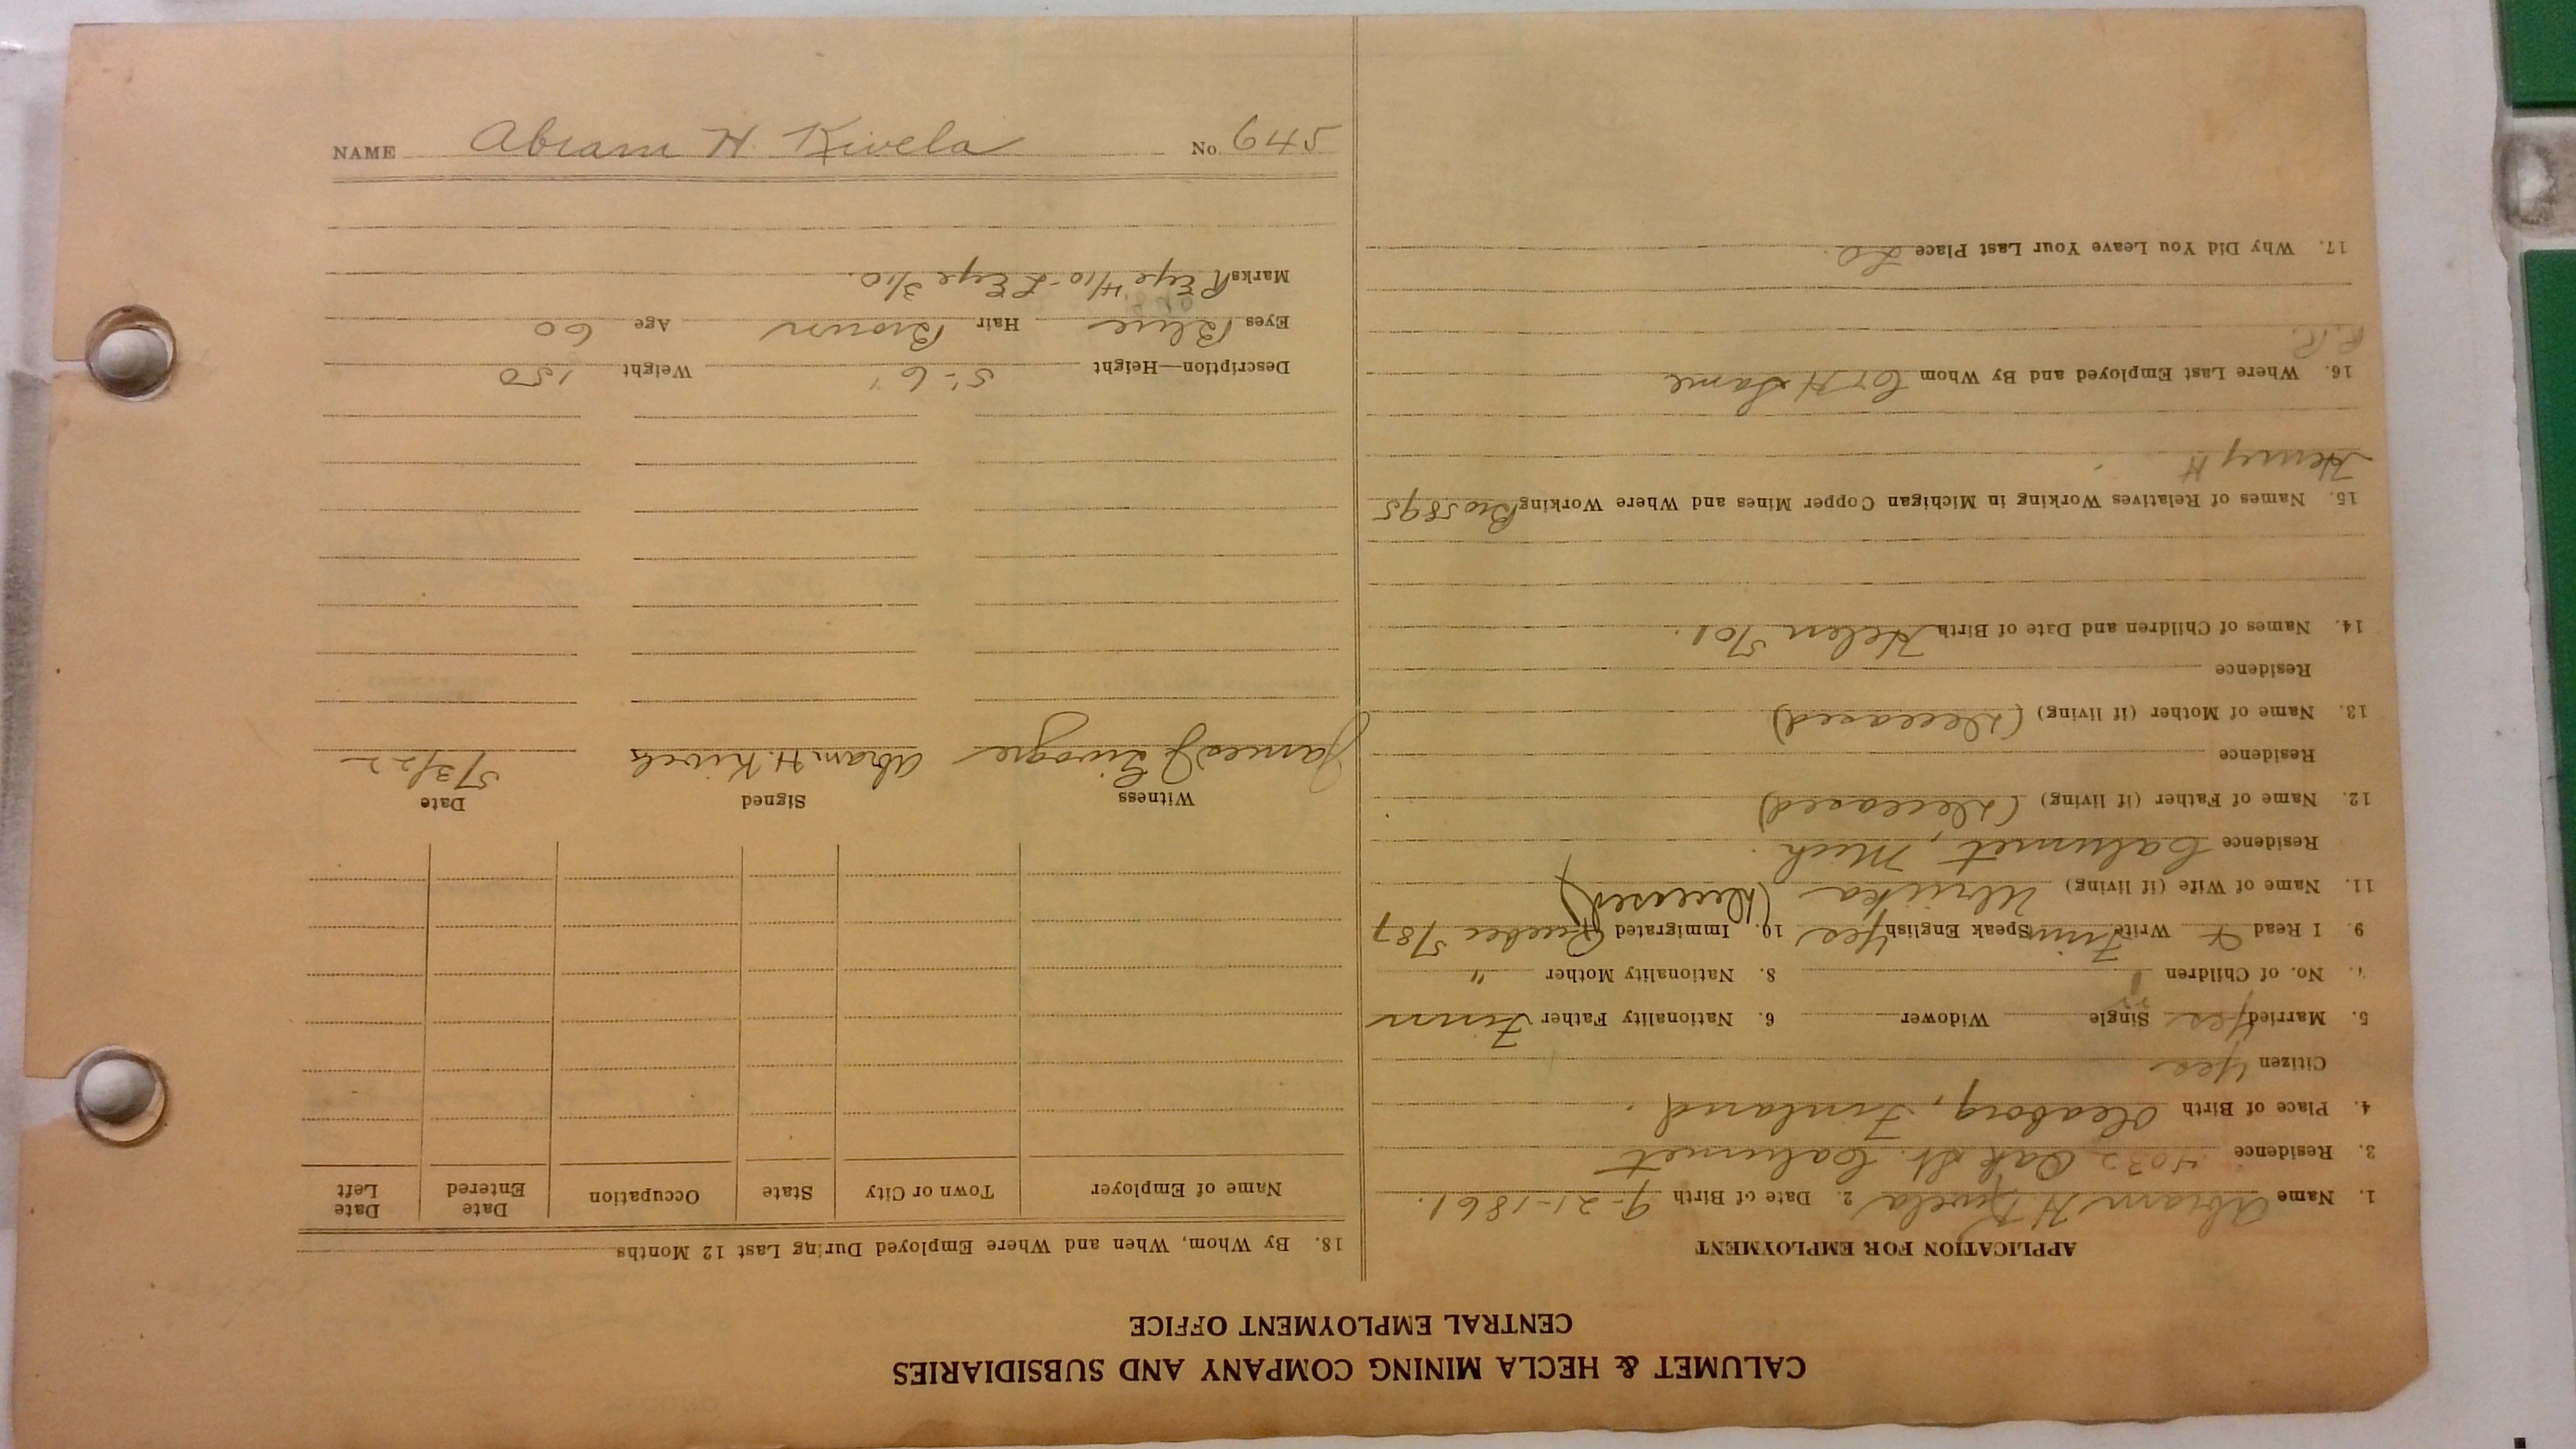 CALUMET & HECLA MINING COMPANY AND SUBSIDIARIES
CENTRAL EMPLOYMENT OFFICE
APPLICATION FOR EMPLOYMENT
1. Name Abram H Kivela 2. Date of Birth 9-21-1861.
3. Residence 4032 Oak St. Calumet
4. Place of Birth Oleaborg, Finland.
Citizen Yes
5. Married Yes Single Widower 6. Nationality Father Finn
7. No. of Children 1 8. Nationality Mother "
9. I Read & Write Finn Speak English Yes 10. Immigrated Quebec 5/87
11. Name of Wife (if living) Ulriika (Deceased)
Residence Calumet, Mich.
12. Name of Father (if living) (Deceased)
Residence
13. Name of Mother (if living) (Deceased)
Residence
14. Names of Children and Date of Birth Helen 5/01.
15. Names of Relatives Working in Michigan Copper Mines and Where Working Bro 5895
Henry H
16. Where Last Employed and By Whom C & H Same
R.R.
17. Why Did You Leave Your Last Place LO.
18. By Whom, When and Where Employed During Last 12 Months
Name of Employer Town or City State Occupation Date Entered Date Left
Witness Signed Date
James J Abram H. Kivela 5/3/22
Description—Height 5'-6" Weight 150
Eyes Blue Hair Brown Age 60
Marks R Eye 4/10 - L Eye 3/10.
NAME Abram H. Kivela No. 645